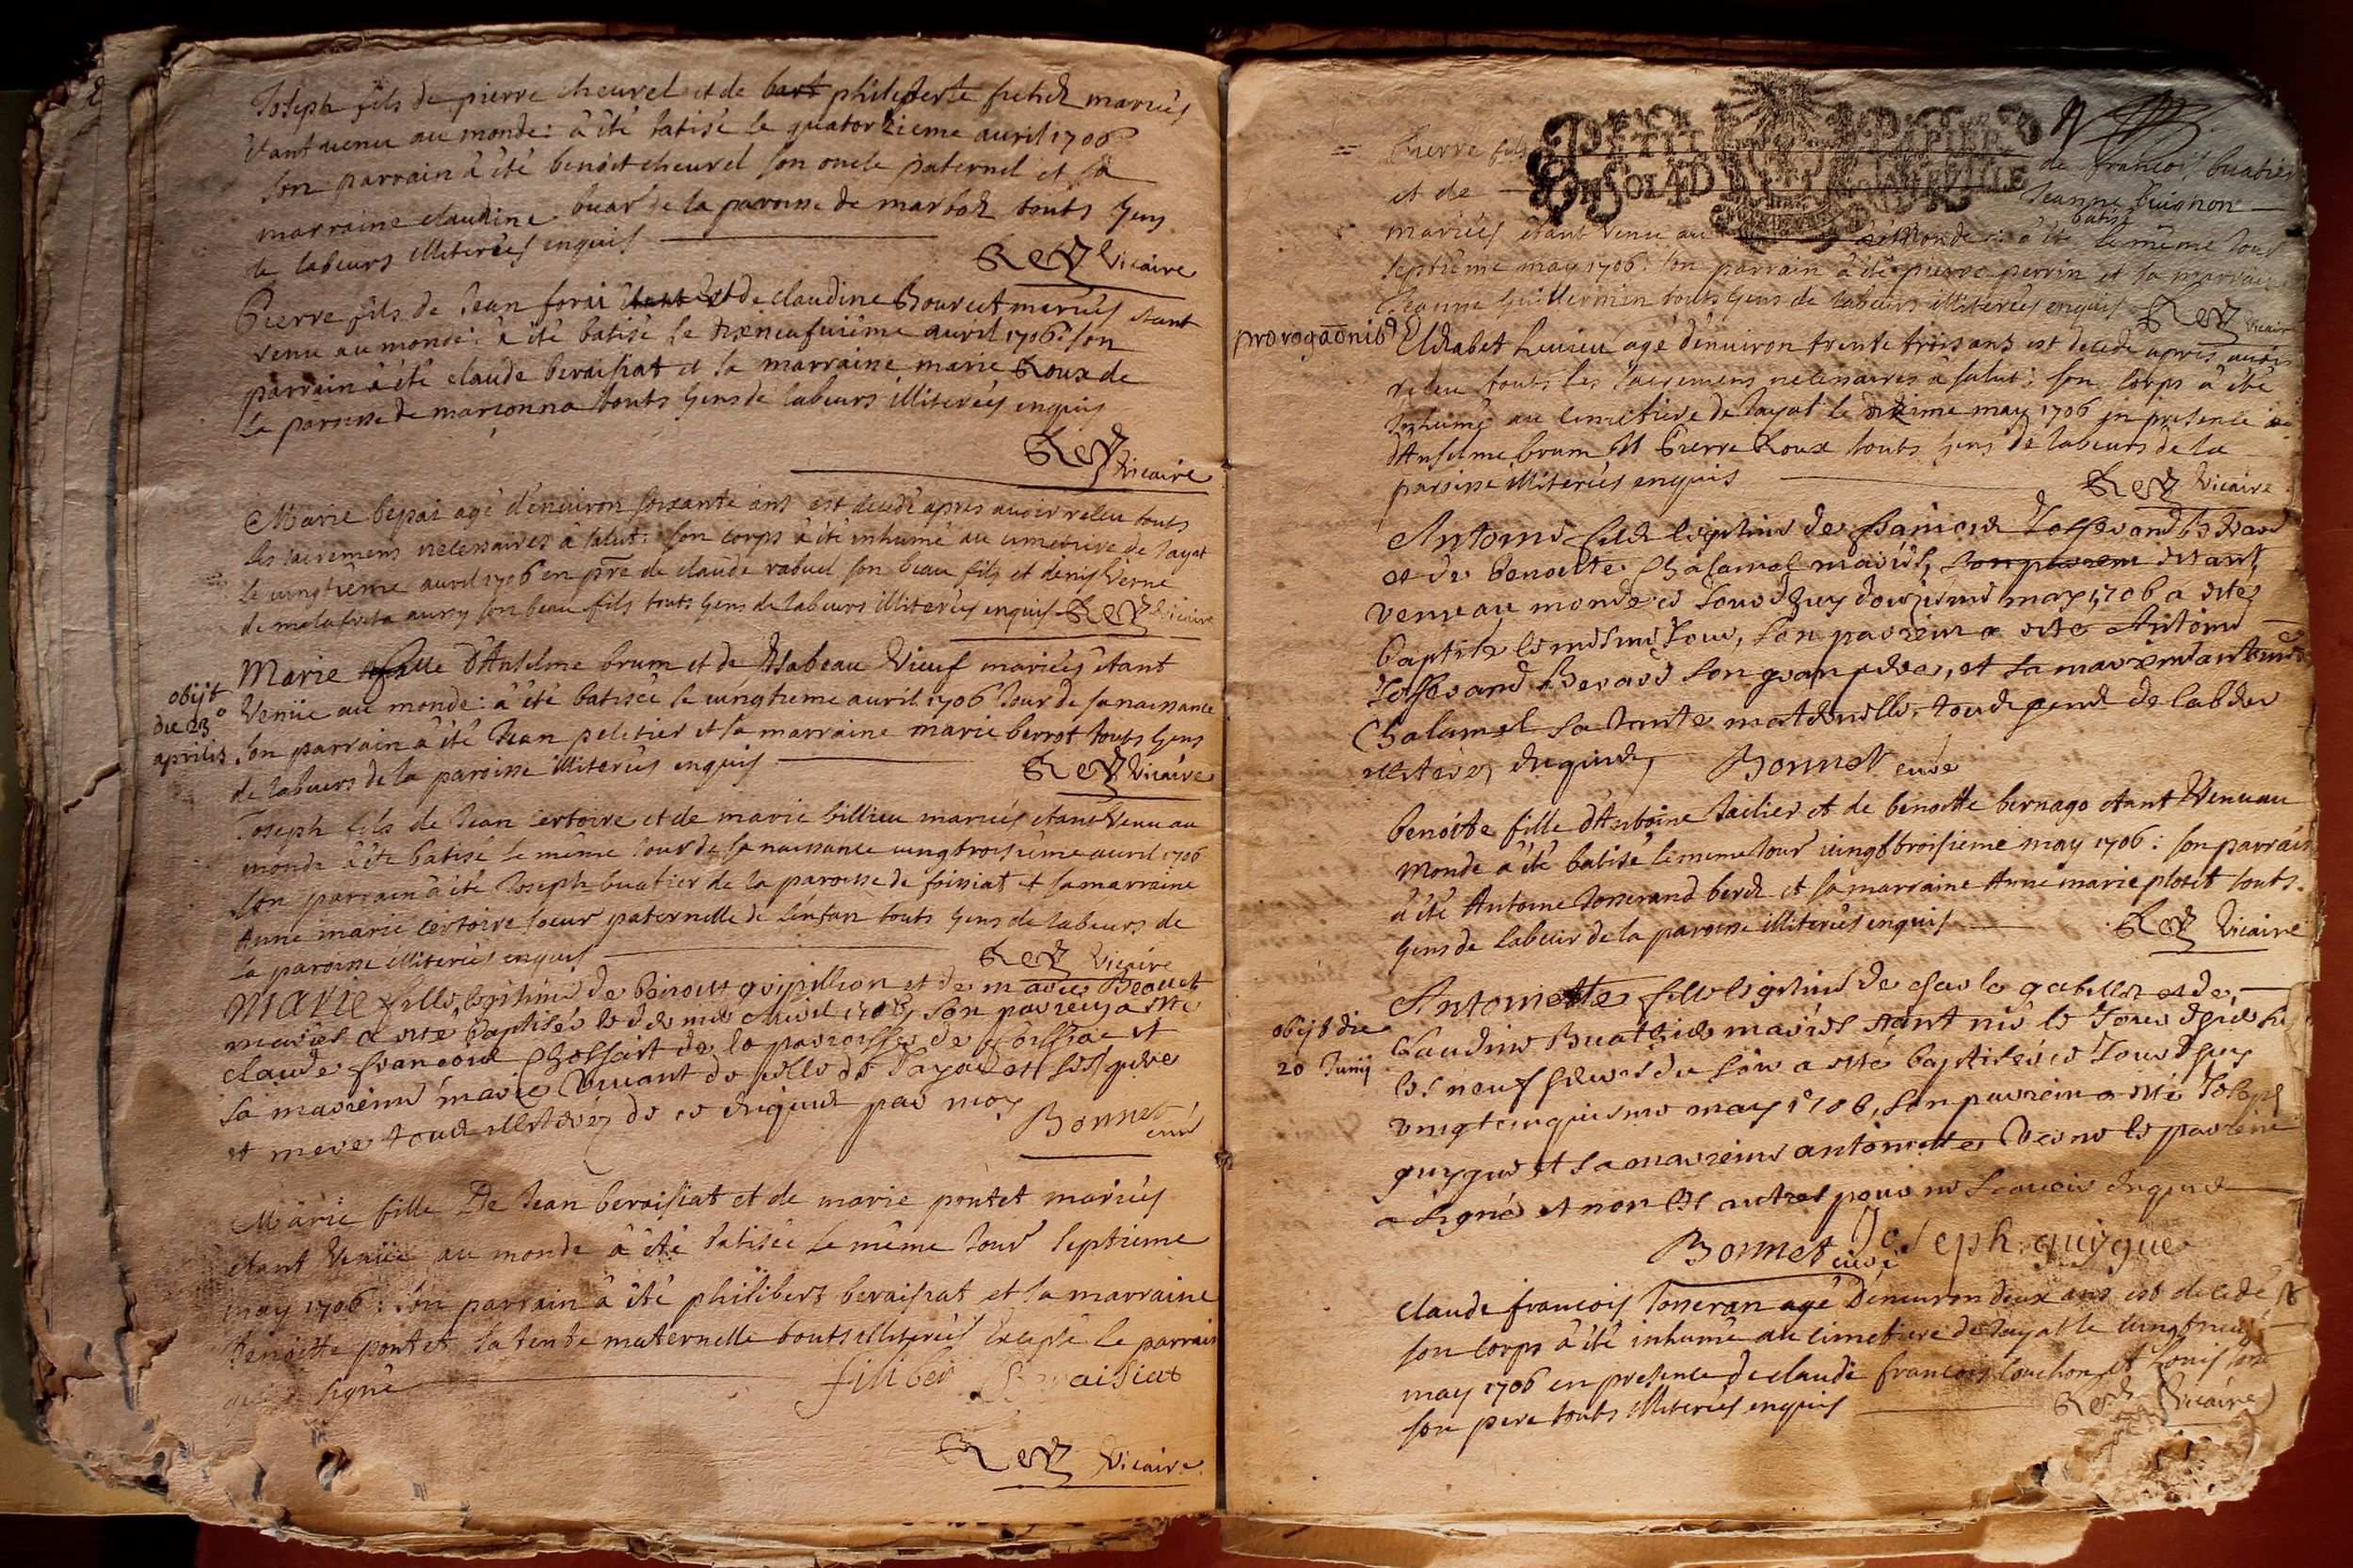 Joseph fils de pierre cheurel et de philiberte mariés
étant venu au monde: à été batisé le quatorzieme auril 1706
son parrain à été benoit cheurel son oncle paternel et sa
marraine claudine buar de la paroisse de marboz touts gens
de labeurs illiterés enquis
Rey Vicaire
Pierre fils de Jean forii et de claudine Bourcet mariés étant
venu au monde: à été batisé le dixneufuiéme auril 1706: son
parrain à été claude beraisiat et sa marraine marie Roux de
la paroisse de marsonna touts gens de labeurs illiterés enquis
Rey Vicaire
Marie bepai agé d'enuiron soixante ans est decedé apres auoir receu touts
les sacremens necessaires à salut: son corps à été inhumé au cimetiere de Jayat
le uingtiéme auril 1706 en pre de claude rabuel son beau fils et denis Verne
de son beau fils touts gens de labeurs illiterés enquis Rey Vicaire
obijt
die 23°
aprilis
Marie fille d'Anselme brum et de Isabeau Vieuf mariés étant
Venüe au monde: à été batisée le uingtieme auril 1706 Jour de sa naissance
son parrain à été Jean peletier et sa marraine marie berrot touts gens
de labeurs de la paroisse illiterés enquis
Rey Vicaire
Joseph fils de Jean certoire et de marie billieu mariés etant Venu au
monde à été batisé le même Jour de sa naissance uingtroisiéme auril 1706
son parrain à été Joseph buatier de la paroisse de foissiat et sa marraine
Anne marie certoire soeur paternelle de l'enfan touts gens de labeurs de
la paroisse illiterés enquis
Rey Vicaire
Marie fille legitime de benoist goipillion et de marie
mariés a esté baptisée le auril 1706 son parein a esté
claude francois de la paroisse de foissiac et
sa mareine marie de Jayat et les pere
et mere tous illiterez de ce enquis par moy
Bonnet curé
Marie fille De Jean beraisiat et de marie pontet mariés
étant Venüe au monde à été batisée le même Jour septieme
may 1706: son parrain à été philibert beraisiat et sa marraine
benoitte pontet sa tente maternelle touts illiterés excepté le parrain
qui à signé
filiber beraisiat
Rey Vicaire
PETIT PAPIER
Pierre fils de francois buatier
et de Jeanne Guignon
batisé
mariés étant Venu au monde: à été le même Jour
septiéme may 1706: son parrain à été pierre perrin et sa marraine
Jeanne Guillermin touts gens de labeurs illiterés enquis
Rey Vicaire
Elizabet agé d'enuiron trente trois ans est decedé apres auoir
receu touts les sacremens necessaires à salut: son corps à été
inhumé au cimetiere de Jayat le dixime may 1706 in presence
d'Anselme brum et Pierre Roux touts gens de labeurs de la
paroisse illiterés enquis
Rey Vicaire
Antoine filz legitime de francois Josserand Berard
et de benoitte Chalamel mariés, estant
venu au monde ce Jourdhuy douzieme may 1706 a esté
baptisé le mesme Jour, son parein a esté Antoine
Josserand Berard son gran pere, et sa mareine antoinette
Chalamel sa tante maternelle, tous gens de labeur
illiterez enquis,
Bonnet curé
Benoite fille d'Antoine tailier et de benoitte bernago etant Venu au
monde à été batisé le meme Jour uingtroisiéme may 1706: son parrain
à été Antoine Josserand berard et sa marraine Anne marie plotet touts
gens de labeur de la paroisse illiterés enquis
Rey Vicaire
obijt die
20 Junij
Antoinette fille legitime de charle gabillet et de
Claudine Buathier mariés étant née le Jour d'hier sur
les neuf heures du soir a esté baptisée ce Jourdhuy
vingtcinquieme may 1706, son parein a esté Joseph
guygue et sa mareine antoinette Verne le pareine
a signé et non les autres pour ne scauoir enquis
Bonnet curé
Joseph guygue
Claude francois Josseran agé d'enuiron deux ans est decedé
son corps à été inhumé au cimetiere de Jayat le
may 1706 en presence de claude francois et Louis
son pere touts illiterés enquis
Rey Vicaire